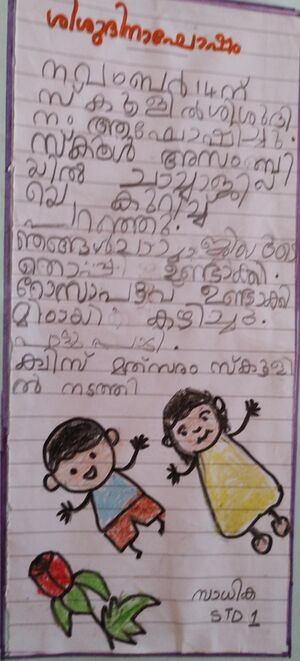 ശിശുദിനാഘോഷം
നവംബർ 14ന്
സ്കൂളിൽ ശിശുദി
നം ആഘോഷിച്ചു.
സ്കൂൾ അസംബ്ലി
യിൽ ചാച്ചാജിയെ
കുറിച്ച്
പറഞ്ഞു.
ഞങ്ങൾ ചാച്ചാജിയുടെ
തൊപ്പി ഉണ്ടാക്കി.
റോസാപൂവ് ഉണ്ടാക്കി
മിഠായി കഴിച്ചു.
പാട്ട് പാടി.
ക്വിസ് മത്സരം സ്കൂളി
ൽ നടത്തി
സാധിക
STD 1